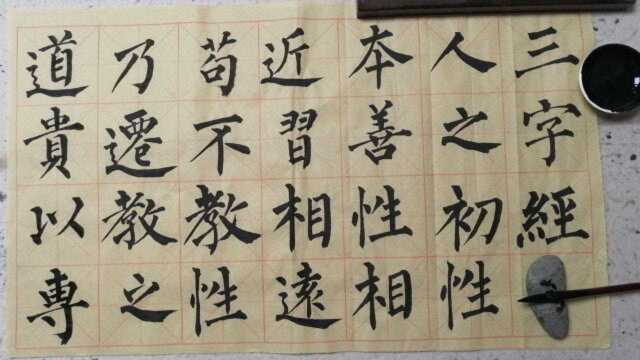 三字經
人之初性
本善性相
近習相遠
苟不教性
乃遷教之
道貴以專